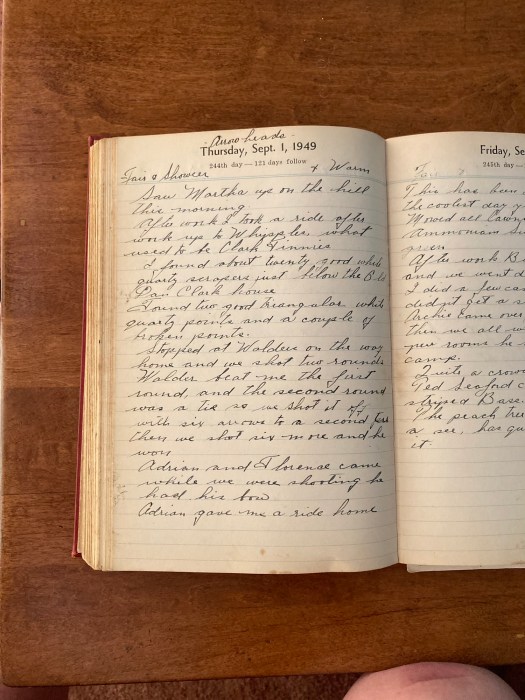 Arrow heads.
Thursday, Sept. 1, 1949
244th day — 121 days follow
Fair & Shower + Warm
Saw Martha up on the hill
this morning
After work I took a ride after
work up to Whipples, what
used to be Clark Finnies
I found about twenty good white
quartz scrapers just below the
Dan Clark house
Found two good triangular white
quartz points and a couple of
broken points.
Stopped at Walders on the way
home and we shot two rounds
Walder beat me the first
round, and the second round
was a tie so we shot it off
with six arrows to a second
then we shot six more and he
won
Adrian and Florence came
while we were shooting he
had his bow
Adrian gave me a ride home
Friday, Se
245th day —
This has been
the coolest day
Mowed all
Ammonium Su
green
After work B
and we went d
I did a few cas
didn't get a s
Archie came over
then we all w
new rooms he
camp.
Quite a crow
Ted Seaford c
striped Base.
The peach tree
a ser, has qu
it